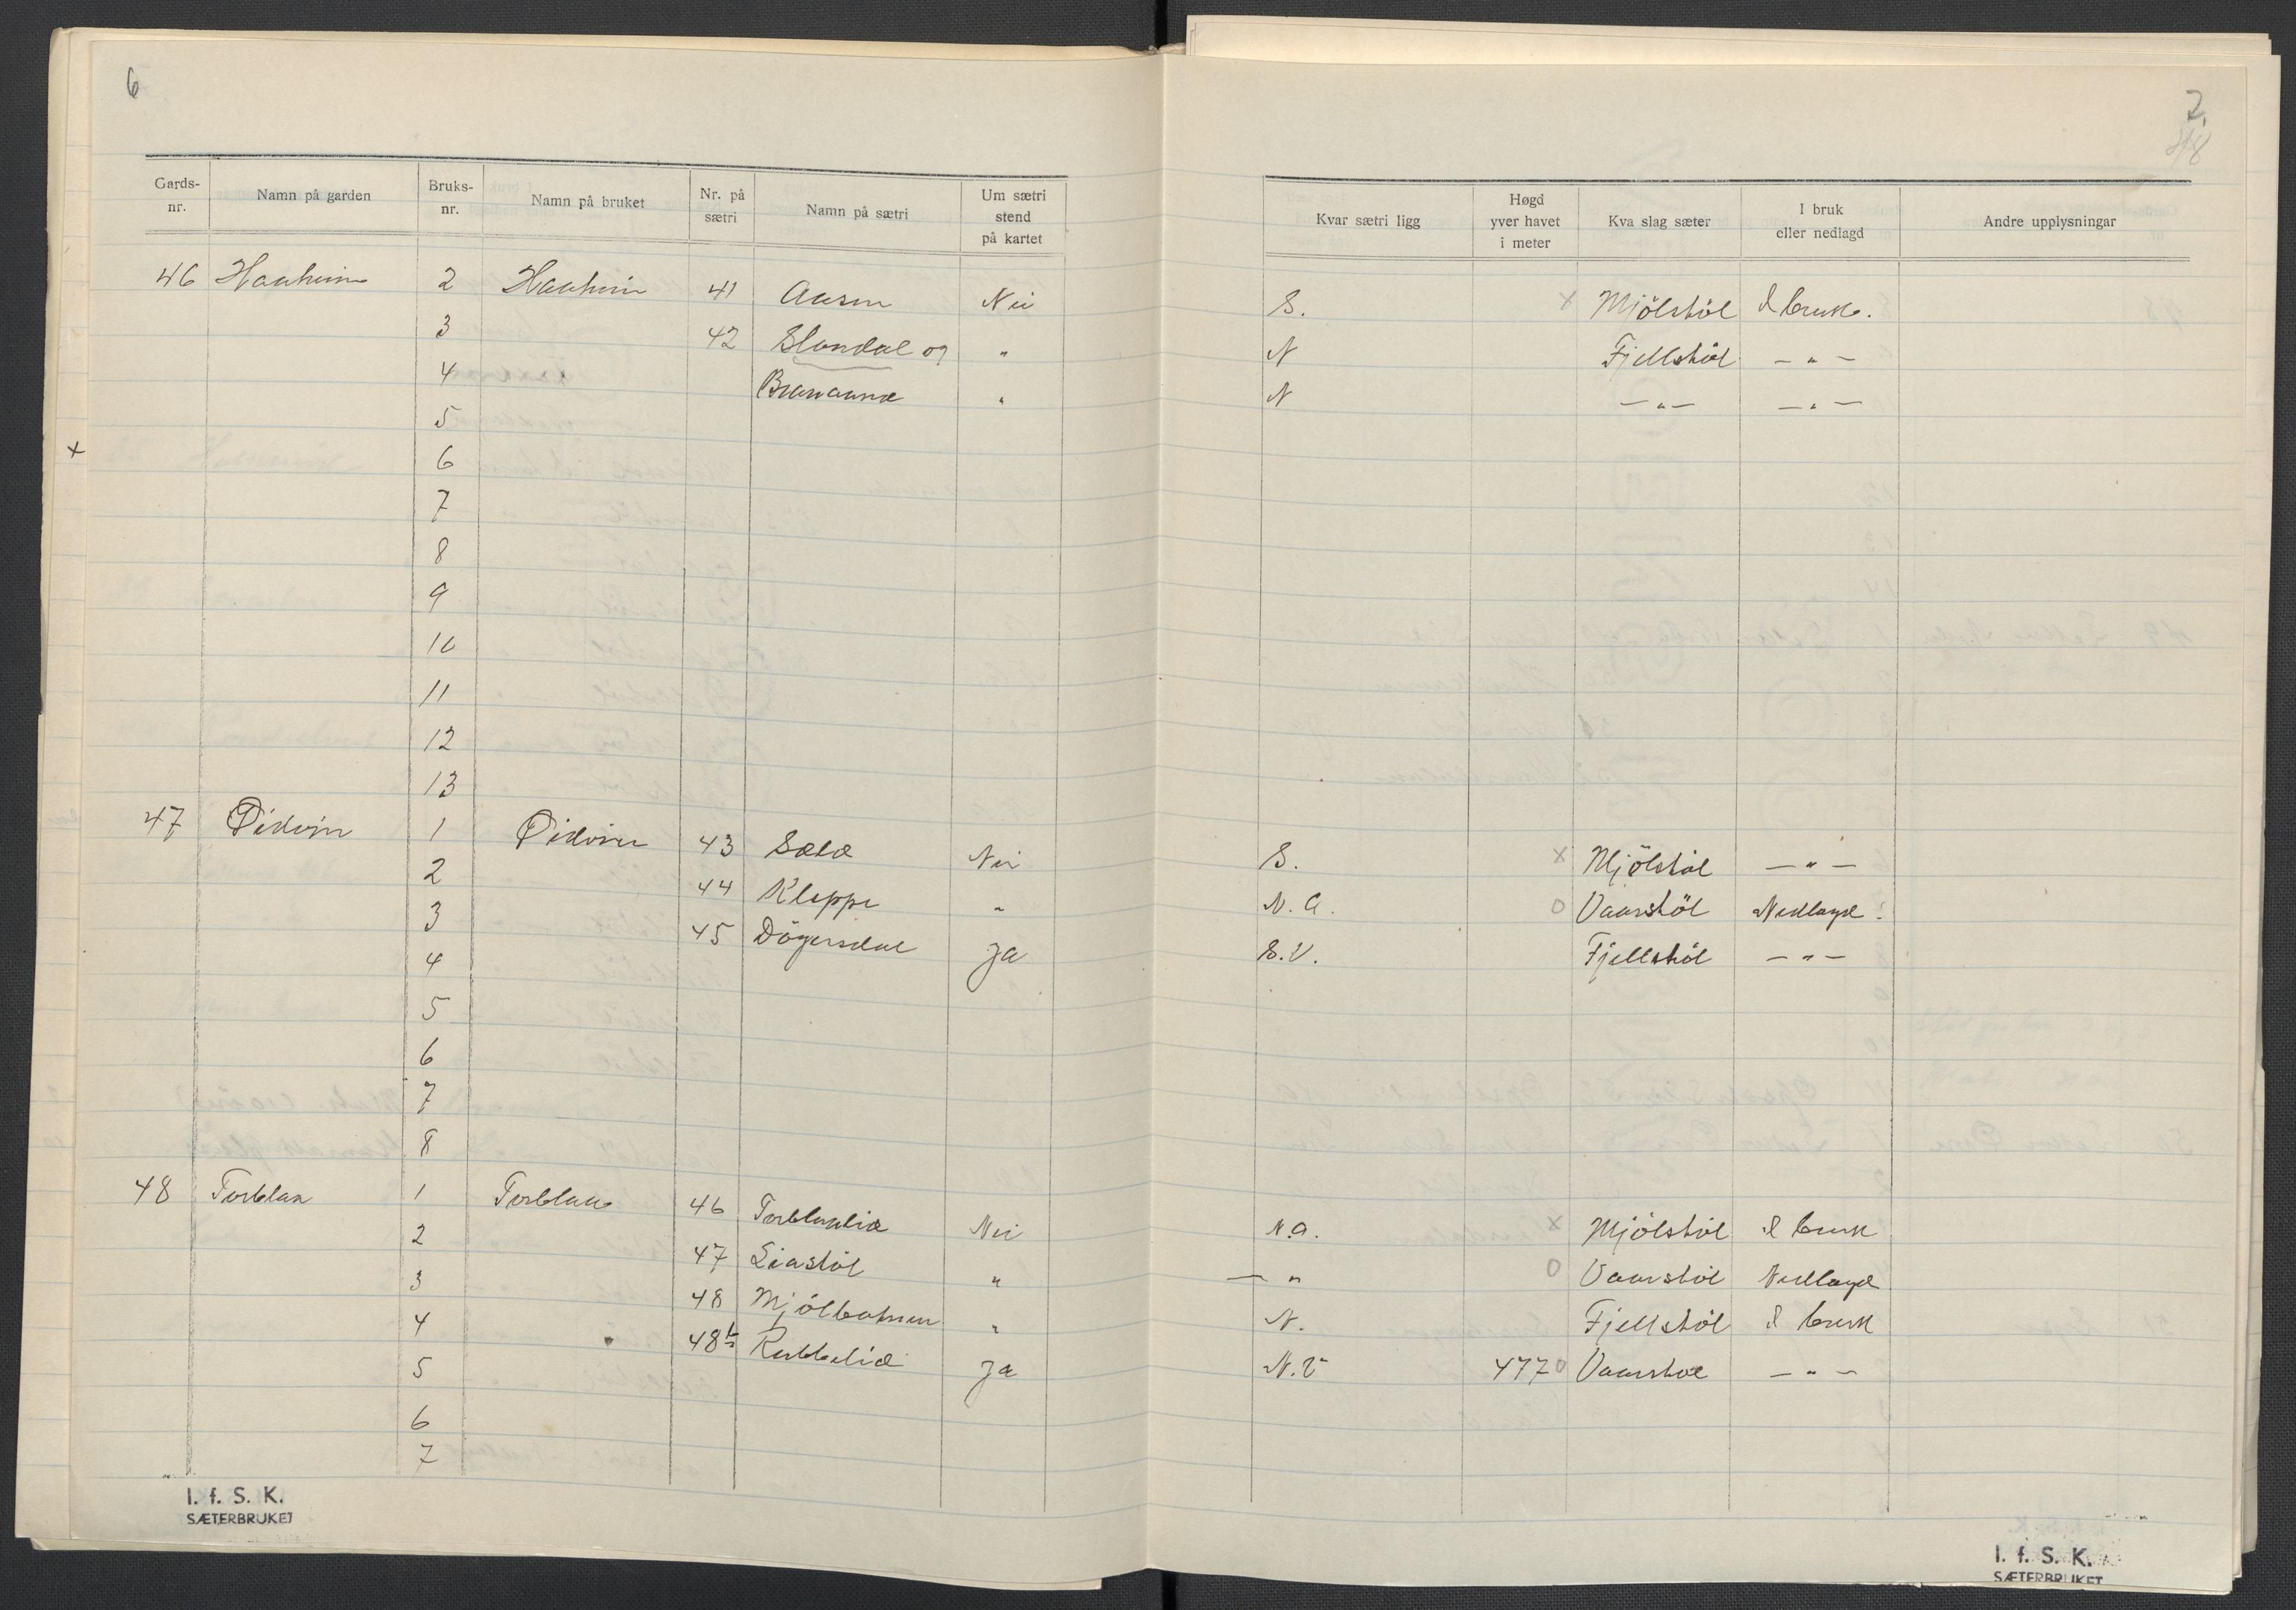 6
2.
Gards-nr. Namn på garden Bruks-nr. Namn på bruket Nr. på sætri Namn på sætri Um sætri stend på kartet Kvar sætri ligg Høgd yver havet i meter Kva slag sæter I bruk eller nedlagd Andre upplysningar
46 Haaheim 2 Haaheim 41 Aasen Nei S. x Mjölstöl I bruk.
3 42 Slondal og " N Fjellstöl — " —
4 " N — " — — " —
5
x
6
7
8
9
10
11
12
13
47 Øidvin 1 Øidvin 43 Sælæ Nei S. x Mjölstöl — " —
2 44 Kleppe " N. A. O Vaarstöl Nedlagd.
3 45 Dögersdal Ja S.V. Fjellstöl — " —
4
5
6
7
8
48 Torblaa 1 Torblaa 46 Torblaalid Nei N.A. x Mjölstöl I bruk
2 47 Liastöl " — " O Vaarstöl Nedlagd
3 48 Mjölbotnen " N. Fjellstöl I bruk
4 48b Rubbelid Ja N.V 477 O Vaarstöl — " —
5
6
7
I. f. S. K.
SÆTERBRUKET
I. f. S. K.
SÆTERBRUKET